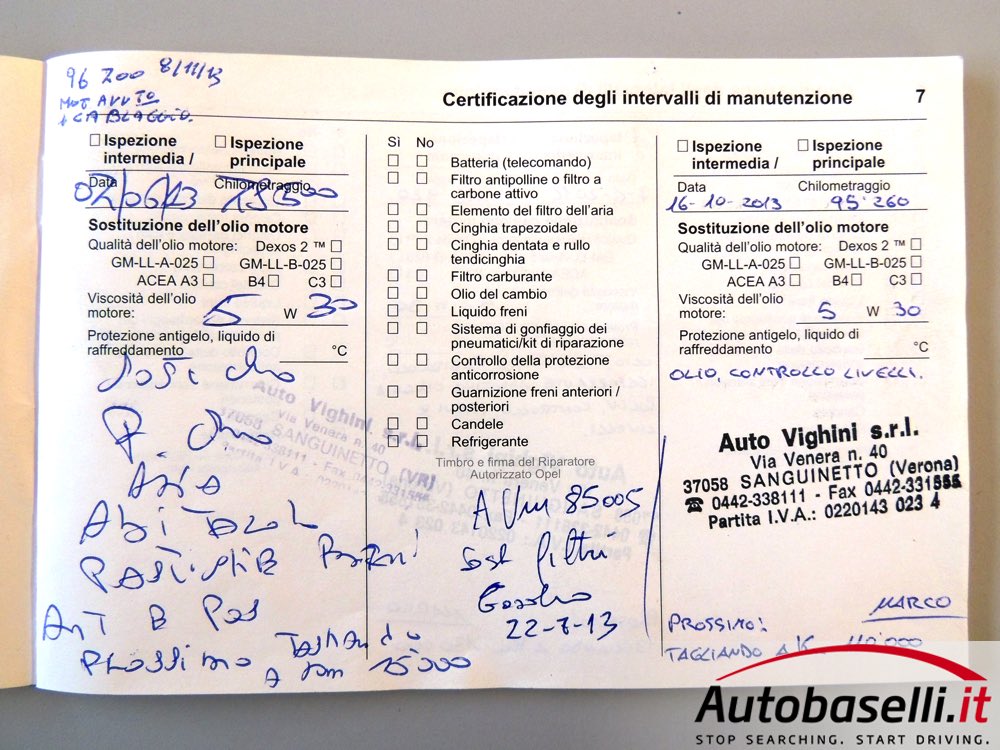 96 200 8/11/13
MOT AVVTO
+ CABLAGGIO.
Certificazione degli intervalli di manutenzione 7
Ispezione intermedia /
Ispezione principale
Data Chilometraggio
02/06/13
Sostituzione dell'olio motore
Qualità dell'olio motore: Dexos 2 ™
GM-LL-A-025 GM-LL-B-025
ACEA A3 B4 C3
Viscosità dell'olio
motore: 5 W 30
Protezione antigelo, liquido di
raffreddamento °C
F. olio
ARIA
PASTIGLIE
ANT E POS
PROSSIMO TAGLIANDO
A 15000
Sì No
Batteria (telecomando)
Filtro antipolline o filtro a
carbone attivo
Elemento del filtro dell'aria
Cinghia trapezoidale
Cinghia dentata e rullo
tendicinghia
Filtro carburante
Olio del cambio
Liquido freni
Sistema di gonfiaggio dei
pneumatici/kit di riparazione
Controllo della protezione
anticorrosione
Guarnizione freni anteriori /
posteriori
Candele
Refrigerante
Timbro e firma del Riparatore
Autorizzato Opel
Auto Vighini s.r.l.
Via Venera n. 40
37058 SANGUINETTO (VR)
85005
Sost filtri
Gasolio
22-7-13
Ispezione intermedia /
Ispezione principale
Data Chilometraggio
16-10-2013 95'260
Sostituzione dell'olio motore
Qualità dell'olio motore: Dexos 2 ™
GM-LL-A-025 GM-LL-B-025
ACEA A3 B4 C3
Viscosità dell'olio
motore: 5 W 30
Protezione antigelo, liquido di
raffreddamento °C
OLIO, CONTROLLO LIVELLI.
Auto Vighini s.r.l.
Via Venera n. 40
37058 SANGUINETTO (Verona)
☎ 0442-338111 - Fax 0442-331555
Partita I.V.A.: 0220143 023 4
MARCO
PROSSIMO:
TAGLIANDO A K. 110'000
Autobaselli.it
STOP SEARCHING. START DRIVING.